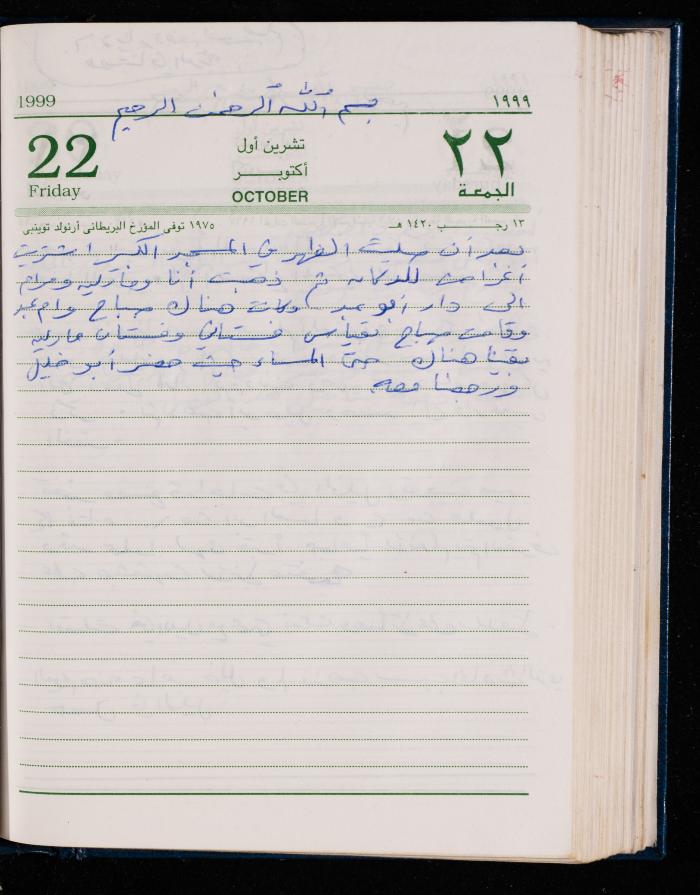 1999 بسم الله الرحمن الرحيم ١٩٩٩
22 تشرين أول ٢٢
Friday أكتوبـــــر الجمعة
OCTOBER
١٣ رجـــــب ١٤٢٠ هـ ١٩٧٥ توفى المؤرخ البريطانى أرنولد توينبى
بعد أن صليت الظهر في المسجد الكبير اشتريت
أغراض للدكانه ثم ذهبت أنا وماريه ومرام
الى دار أبو عبد وكانت هناك صباح وام عبد
وقامت صباح بقياس فستاني وفستان ماريه
بقينا هناك حتى المساء حيث حضر أبو خليل
ورجعنا معه